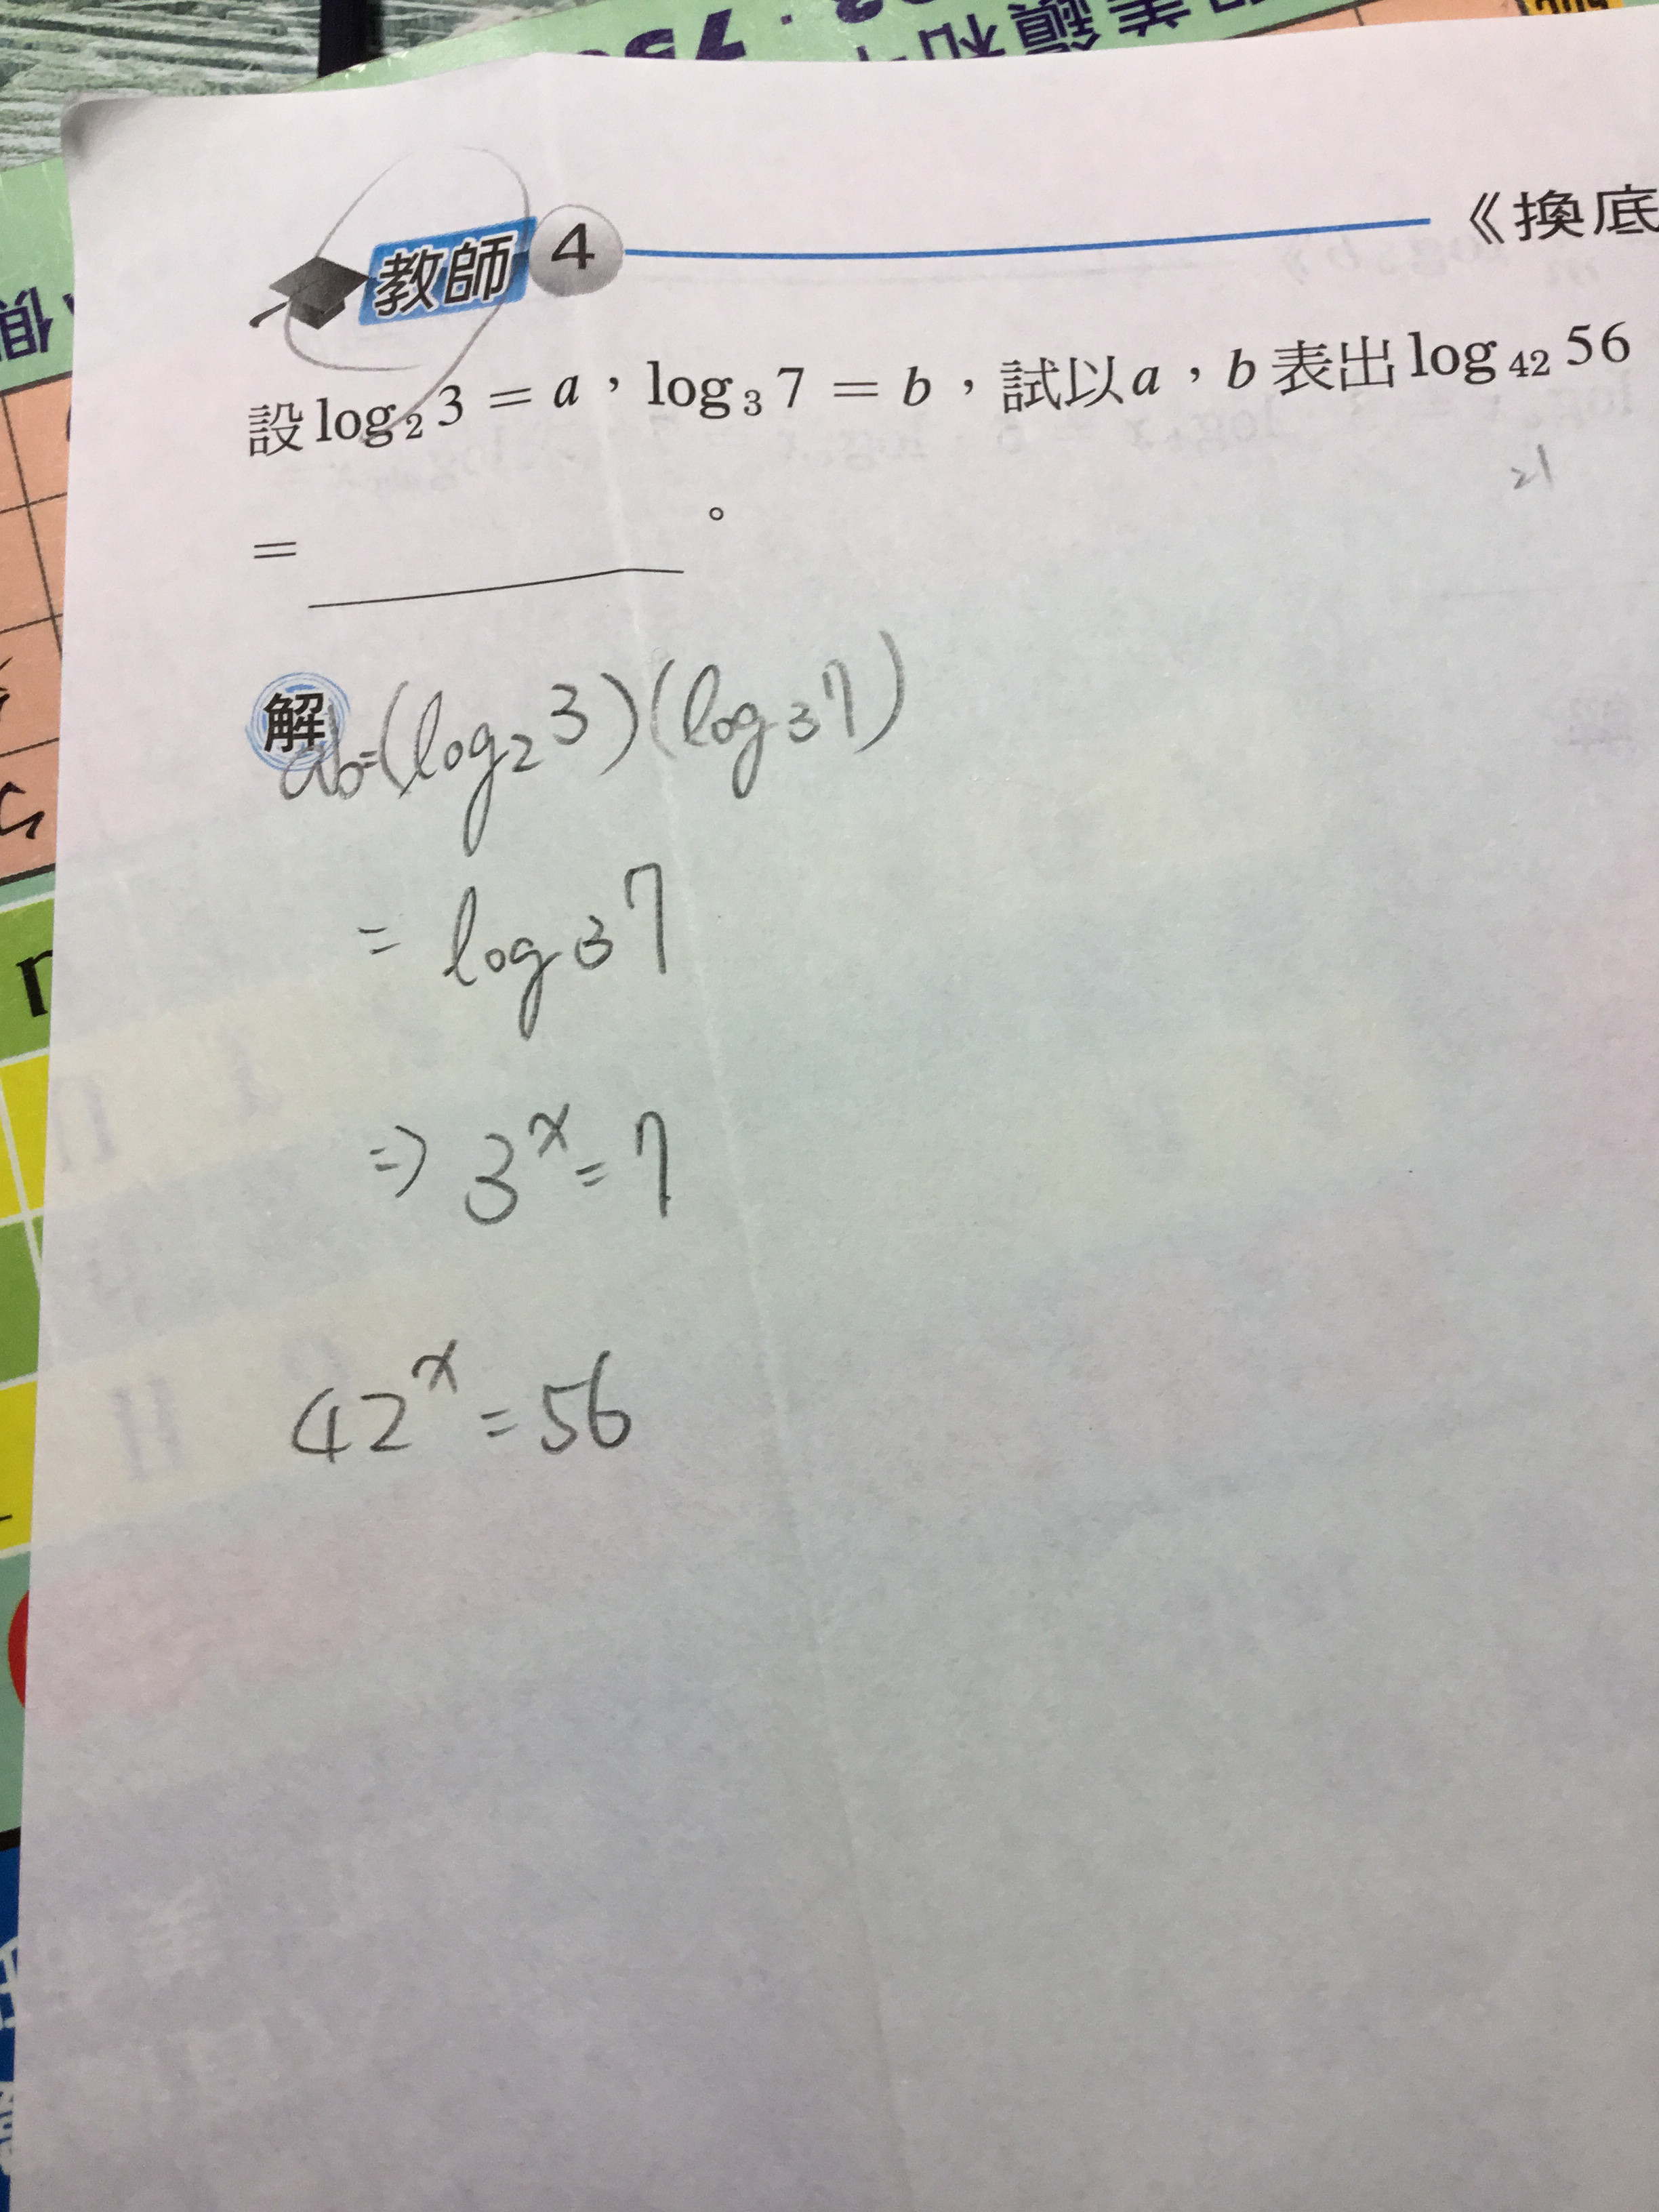 教師 4 《換底
設 log₂ 3 = a，log₃ 7 = b，試以 a，b 表出 log₄₂ 56
21
= ＿＿＿＿＿＿。
解
ab=(log₂3)(log₃7)
= log₃7
⇒ 3ˣ=7
42ˣ=56